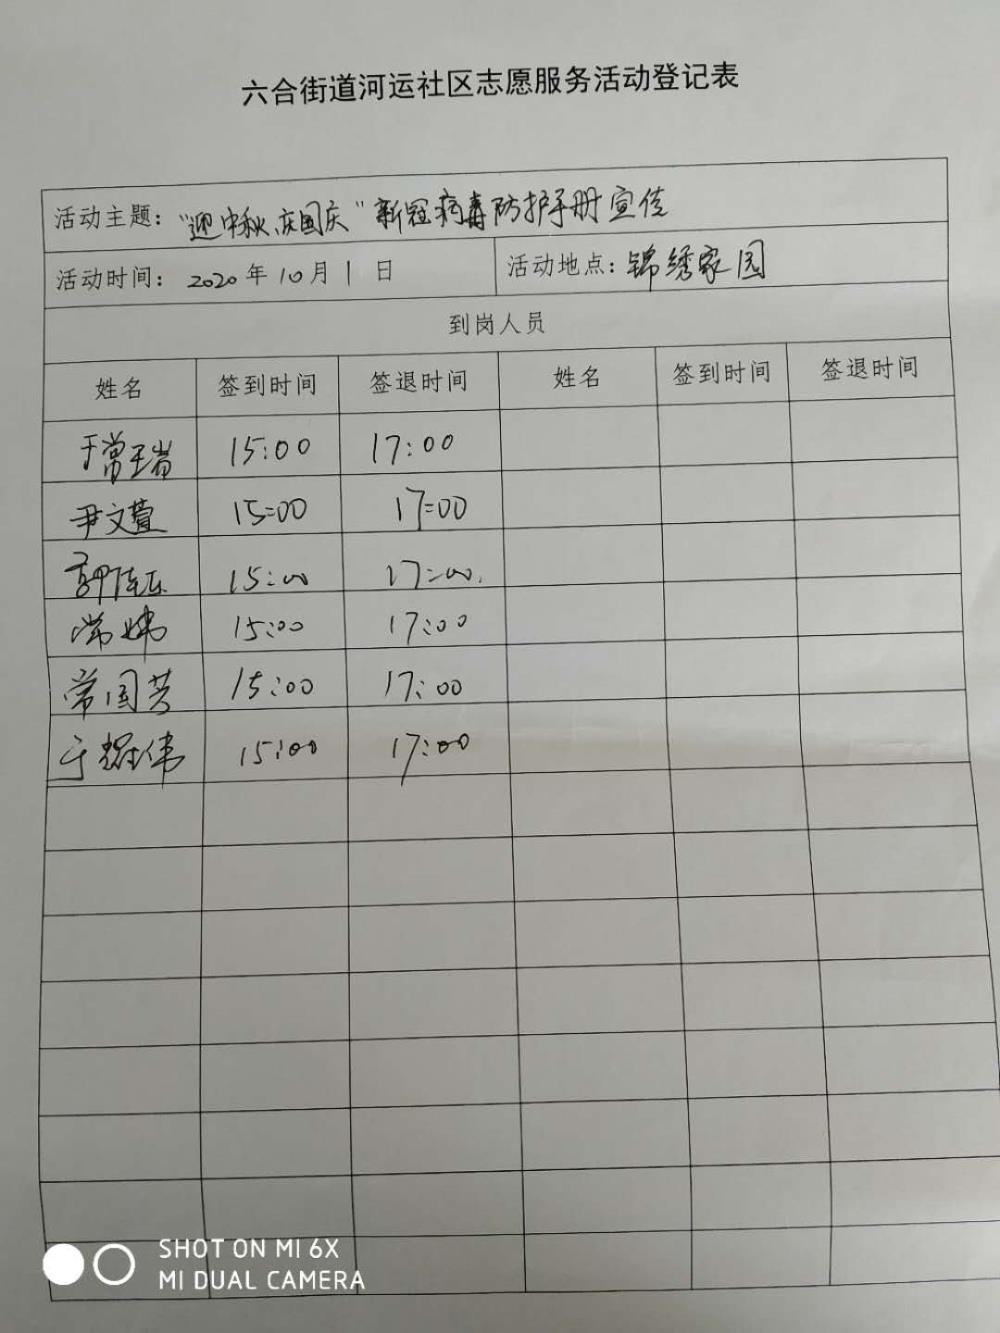 六合街道河运社区志愿服务活动登记表
活动主题："迎中秋、庆国庆"新冠病毒防护手册宣传
活动时间：2020年10月1日 活动地点：锦绣家园
到岗人员
姓名 签到时间 签退时间 姓名 签到时间 签退时间
于常瑞 15:00 17:00
尹文萱 15:00 17:00
15:00 17:00.
常婕 15:00 17:00
常国芳 15:00 17:00
于耀伟 15:00 17:00
SHOT ON MI 6X
MI DUAL CAMERA